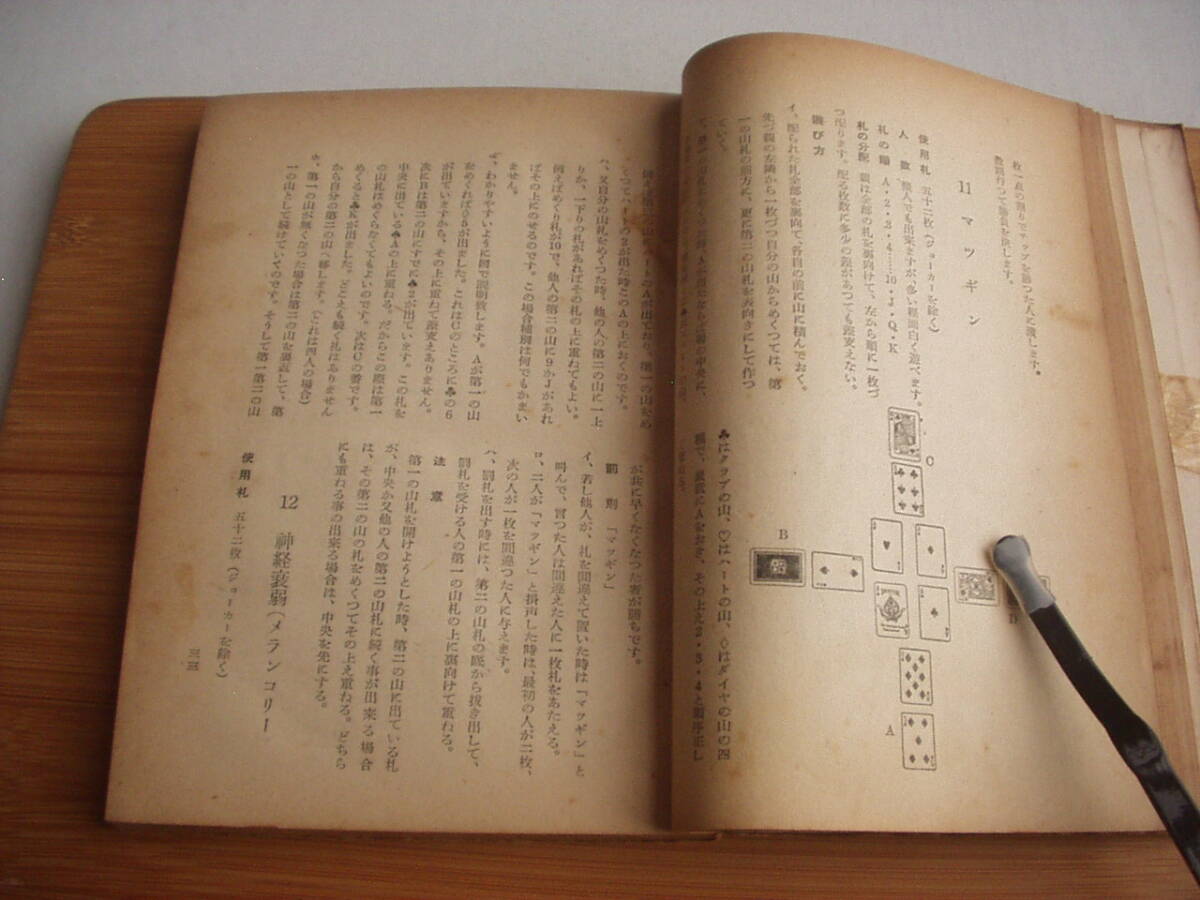 枚一点の割りでマツブを勝つた人に渡します。
数回行つて勝負を決します。
11 マツギン
使用札 五十二枚(ジョーカーを除く)
人数 幾人でも出来ますが、多い程面白く遊べます。
札の順 A・2・3・4……10・J・Q・K
札の分配 親は全部の札を裏向けて、左から順に一枚づ
つ配ります。配る枚数に多少の差があつても差支えない。
遊び方
イ、配られた札全部を裏向て、各自の前に山に積んでおく。
先づ親の左隣から一枚づつ自分の山からめくつては、第
一の山札の前方に、更に第二の山札を表向きにして作つ
ていく。
C
B
D
A
♣はクラブの山、♡はハートの山、♢はダイヤの山の四
種で、最底にAをおき、その上え2・3・4と順序正し
くつてハートの2が出た時このAの上におくのです。
ハ、又自分の山札をめくつた時、他人の第二の山に一上
りか、一下りの札があればその札の上に重ねてもよい。
例えばめくり札が10で、他人の第二の山に9かJがあれ
ばその上にのせるのです。この場合種別は何でもかまい
ません。
わかりやすいように図で説明致します。Aが第一の山
をめくれば♢5が出ました。これはCのところに♣の6
が出ていますから、その上に重ねて差支えありません。
次にBは第二の山にすでに♣2が出ています。この札を
中央に出ている♣Aの上に重ねる。だからこの際は第一
の山札はめくらなくてもよいのです。次はCの番です。
めくると♣Kが出ました。どこえも続く札はありません
から自分の第二の山へ移します。(これは四人の場合)
ホ、第一の山が無くなつた場合は第二の山を裏返して、第
一の山として続けていくのです。そうして第一第二の山
が共に早くなくなつた者が勝ちです。
罰則 「マツギン」
イ、若し他人が、札を間違えて置いた時は「マツギン」と
叫んで、言つた人は間違えた人に一枚札をあたえる。
ロ、二人が「マツギン」と揚声した時は、最初の人が二枚、
次の人が一枚を間違つた人に与えます。
ハ、罰札を出す時には、第二の山札の底から抜き出して、
罰札を受ける人の第一の山札の上に裏向けて重ねる。
注意
第一の山札を開けようとした時、第二の山に出ている札
が、中央か又他の人の第二の山札に続く事が出来る場合
は、その第二の山の札をめくつてその上え重ねる。どちら
にも重ねる事の出来る場合は、中央を先にする。
12 神経衰弱(メランコリー
使用札 五十二枚(ジョーカーを除く)
三三